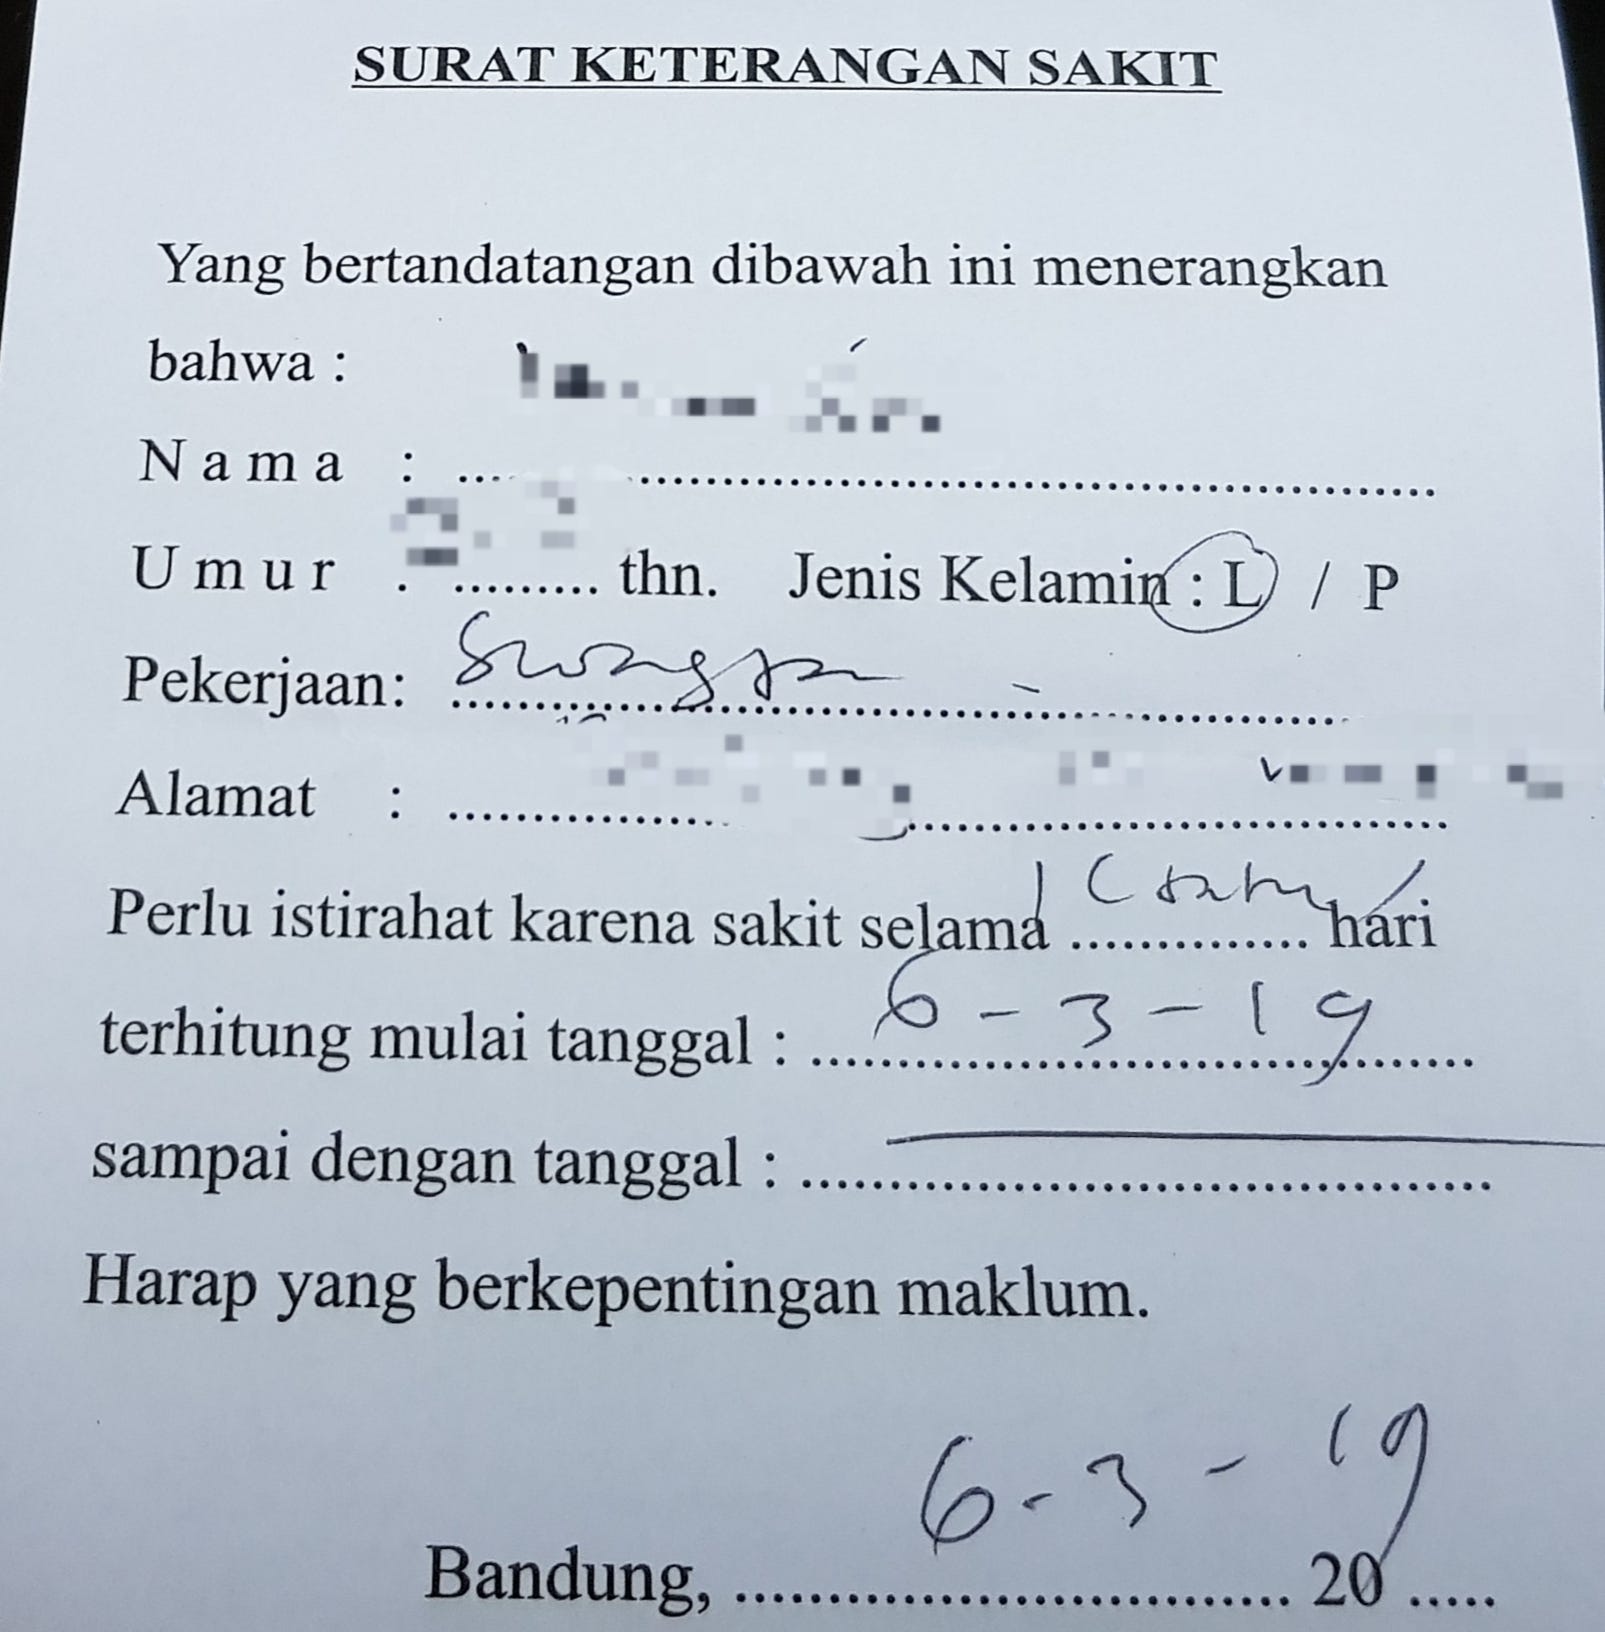 SURAT KETERANGAN SAKIT
Yang bertandatangan dibawah ini menerangkan
bahwa :
Nama : ....................
Umur : ......... thn. Jenis Kelamin : L / P
Pekerjaan: ....................
Alamat : ....................
Perlu istirahat karena sakit selama 1 ( satu ) hari
terhitung mulai tanggal : 6 - 3 - 19
sampai dengan tanggal : ....................
Harap yang berkepentingan maklum.
6 - 3 - 19
Bandung, .................... 20 .....